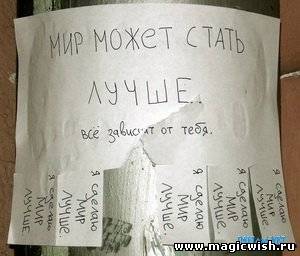 МИР МОЖЕТ СТАТЬ
ЛУЧШЕ..
всё зависит от тебя.
Я сделаю
МИР
ЛУЧШЕ.
Я сделаю
МИР
ЛУЧШЕ.
Я сделаю
МИР
ЛУЧШЕ.
Я сделаю
МИР
ЛУЧШЕ.
Я сделаю
МИР
ЛУЧШЕ.
www.magicwish.ru